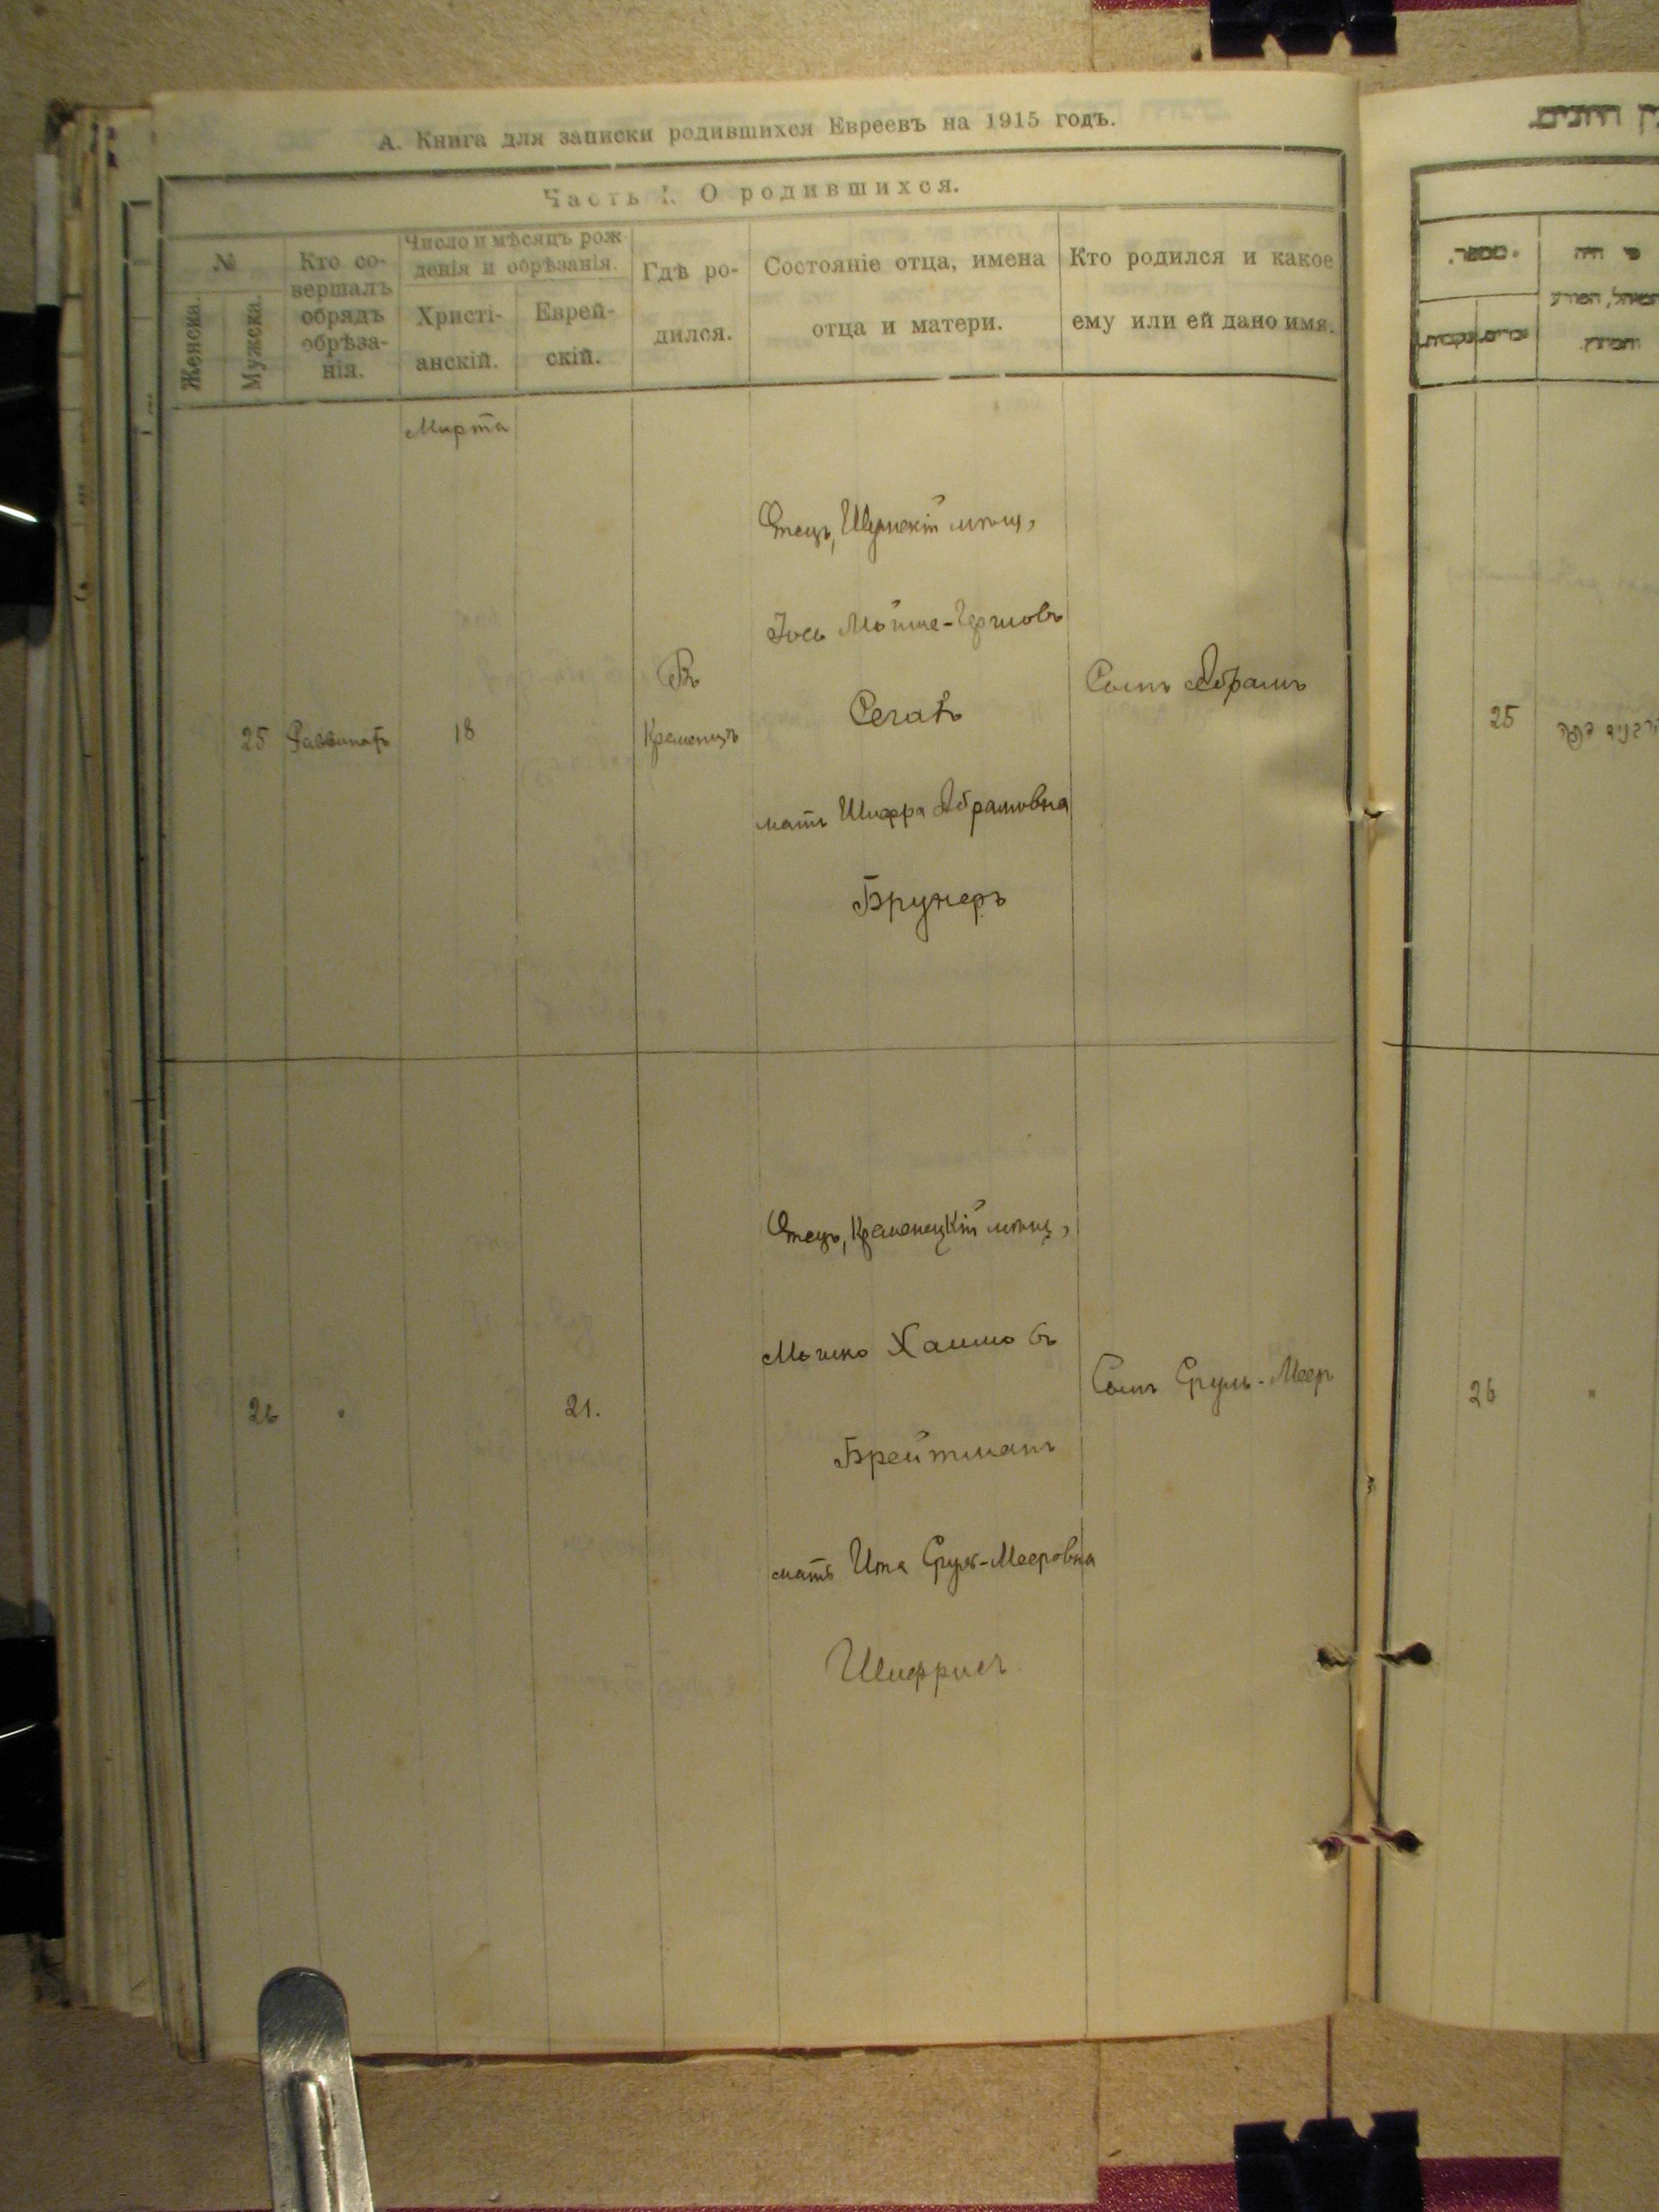 А. Книга для записки родившихся Евреевъ на 1915 годъ.
Часть I. О родившихся.
№
Женска.
Мужска.
Кто со-
вершалъ
обрядъ
обрѣза-
нія.
Число и мѣсяцъ рож
денія и обрѣзанія.
Христі-
анскій.
Еврей-
скій.
Гдѣ ро-
дился.
Состояніе отца, имена
отца и матери.
Кто родился и какое
ему или ей дано имя.
Марта
25
Раввинатъ
18
Въ
Кременцѣ
Отецъ, Шумскій мѣщ,
Іось Мойше-Гершковъ
Сегалъ
мать Шифра Абрамовна
Брунеръ
Сынъ Абрамъ
26
"
21.
Отецъ, Кременецкій мѣщ,
Мошко Хаимовъ
Брейтманъ
мать Ита Сруль-Мееровна
Шифрисъ
Сынъ Сруль-Мееръ
מספר.
מי היה
25
26
"